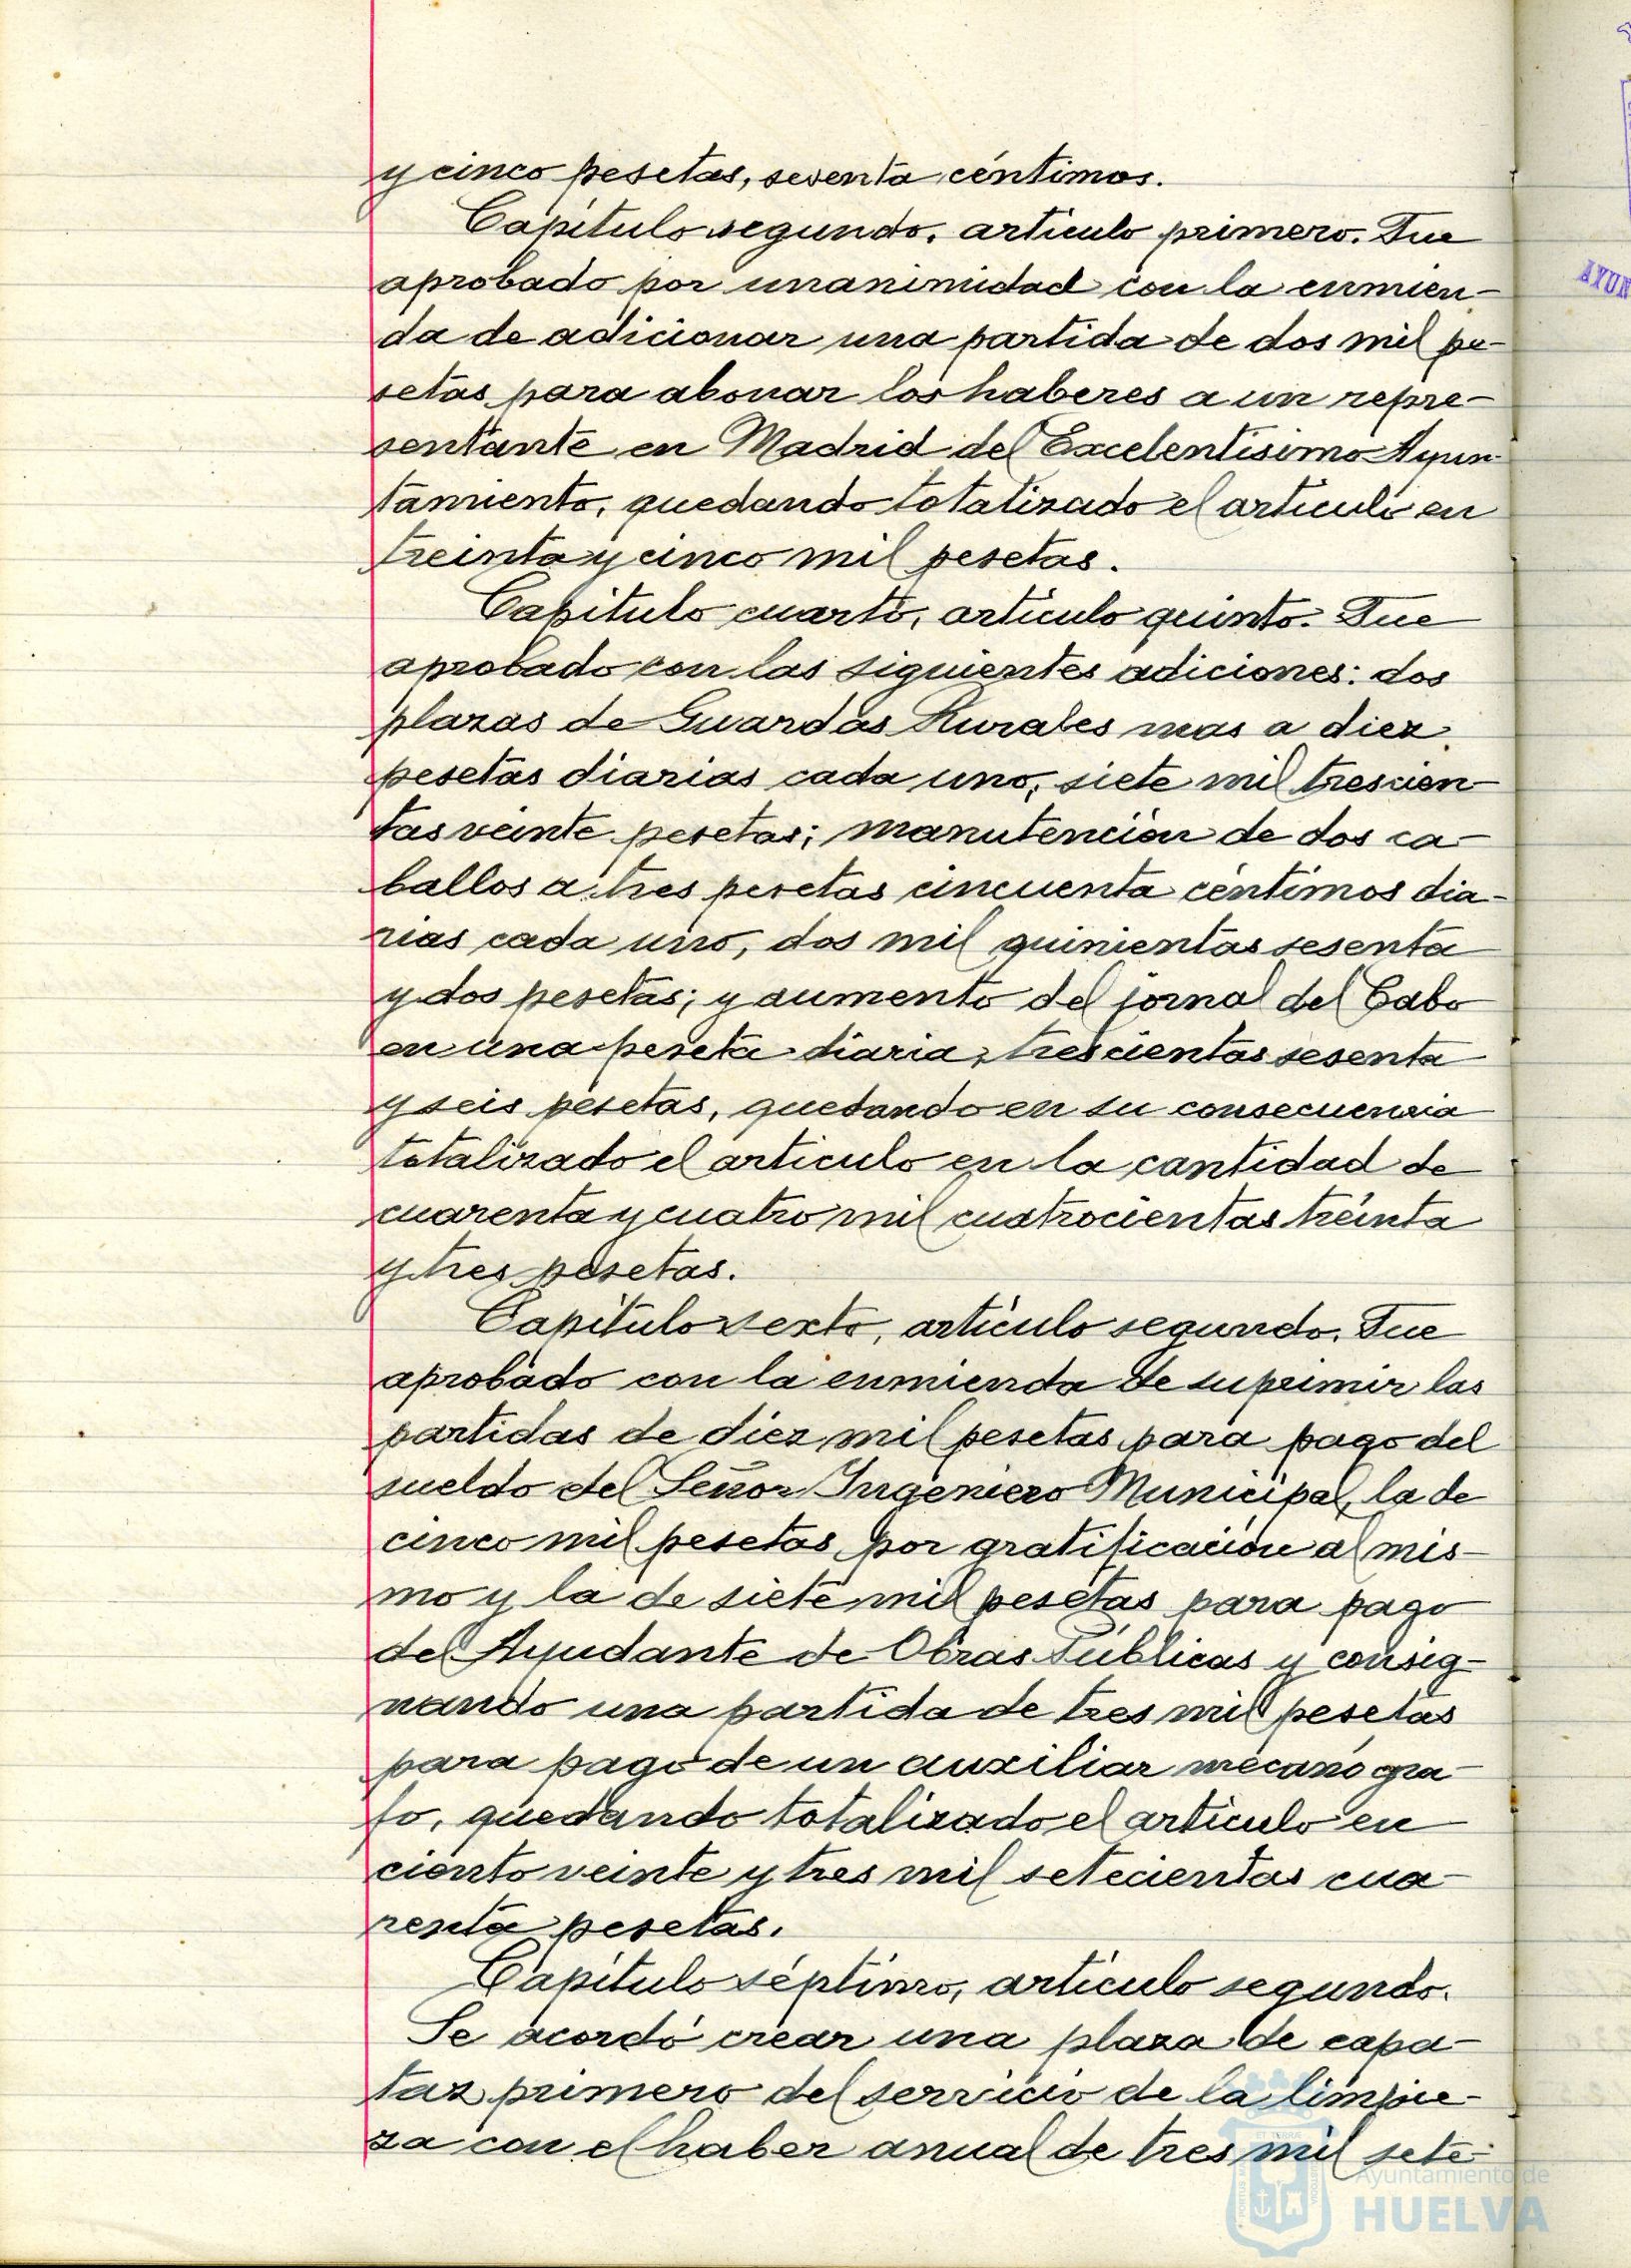 y cinco pesetas, sesenta céntimos.
Capítulo segundo, artículo primero. Fue
aprobado por unanimidad con la enmien-
da de adicionar una partida de dos mil pe-
setas para abonar los haberes a un repre-
sentante en Madrid del Excelentísimo Ayun-
tamiento, quedando totalizado el artículo en
treinta y cinco mil pesetas.
Capítulo cuarto, artículo quinto. Fue
aprobado con las siguientes adiciones: dos
plazas de Guardas Rurales mas a diez
pesetas diarias cada uno, siete mil trescien-
tas veinte pesetas; manutención de dos ca-
ballos a tres pesetas cincuenta céntimos dia-
rias cada uno, dos mil quinientas sesenta
y dos pesetas; y aumento del jornal del Cabo
en una peseta diaria, trescientas sesenta
y seis pesetas, quedando en su consecuencia
totalizado el artículo en la cantidad de
cuarenta y cuatro mil cuatrocientas treinta
y tres pesetas.
Capítulo sexto, artículo segundo. Fue
aprobado con la enmienda de suprimir las
partidas de diez mil pesetas para pago del
sueldo del Señor Ingeniero Municipal, la de
cinco mil pesetas por gratificación al mis-
mo y la de siete mil pesetas para pago
del Ayudante de Obras Públicas y consig-
nando una partida de tres mil pesetas
para pago de un auxiliar mecanógra-
fo, quedando totalizado el artículo en
ciento veinte y tres mil setecientas cua-
renta pesetas.
Capítulo séptimo, artículo segundo.
Se acordó crear una plaza de capa-
taz primero del servicio de la limpie-
za con el haber anual de tres mil sete-
AYUN
Ayuntamiento de
HUELVA